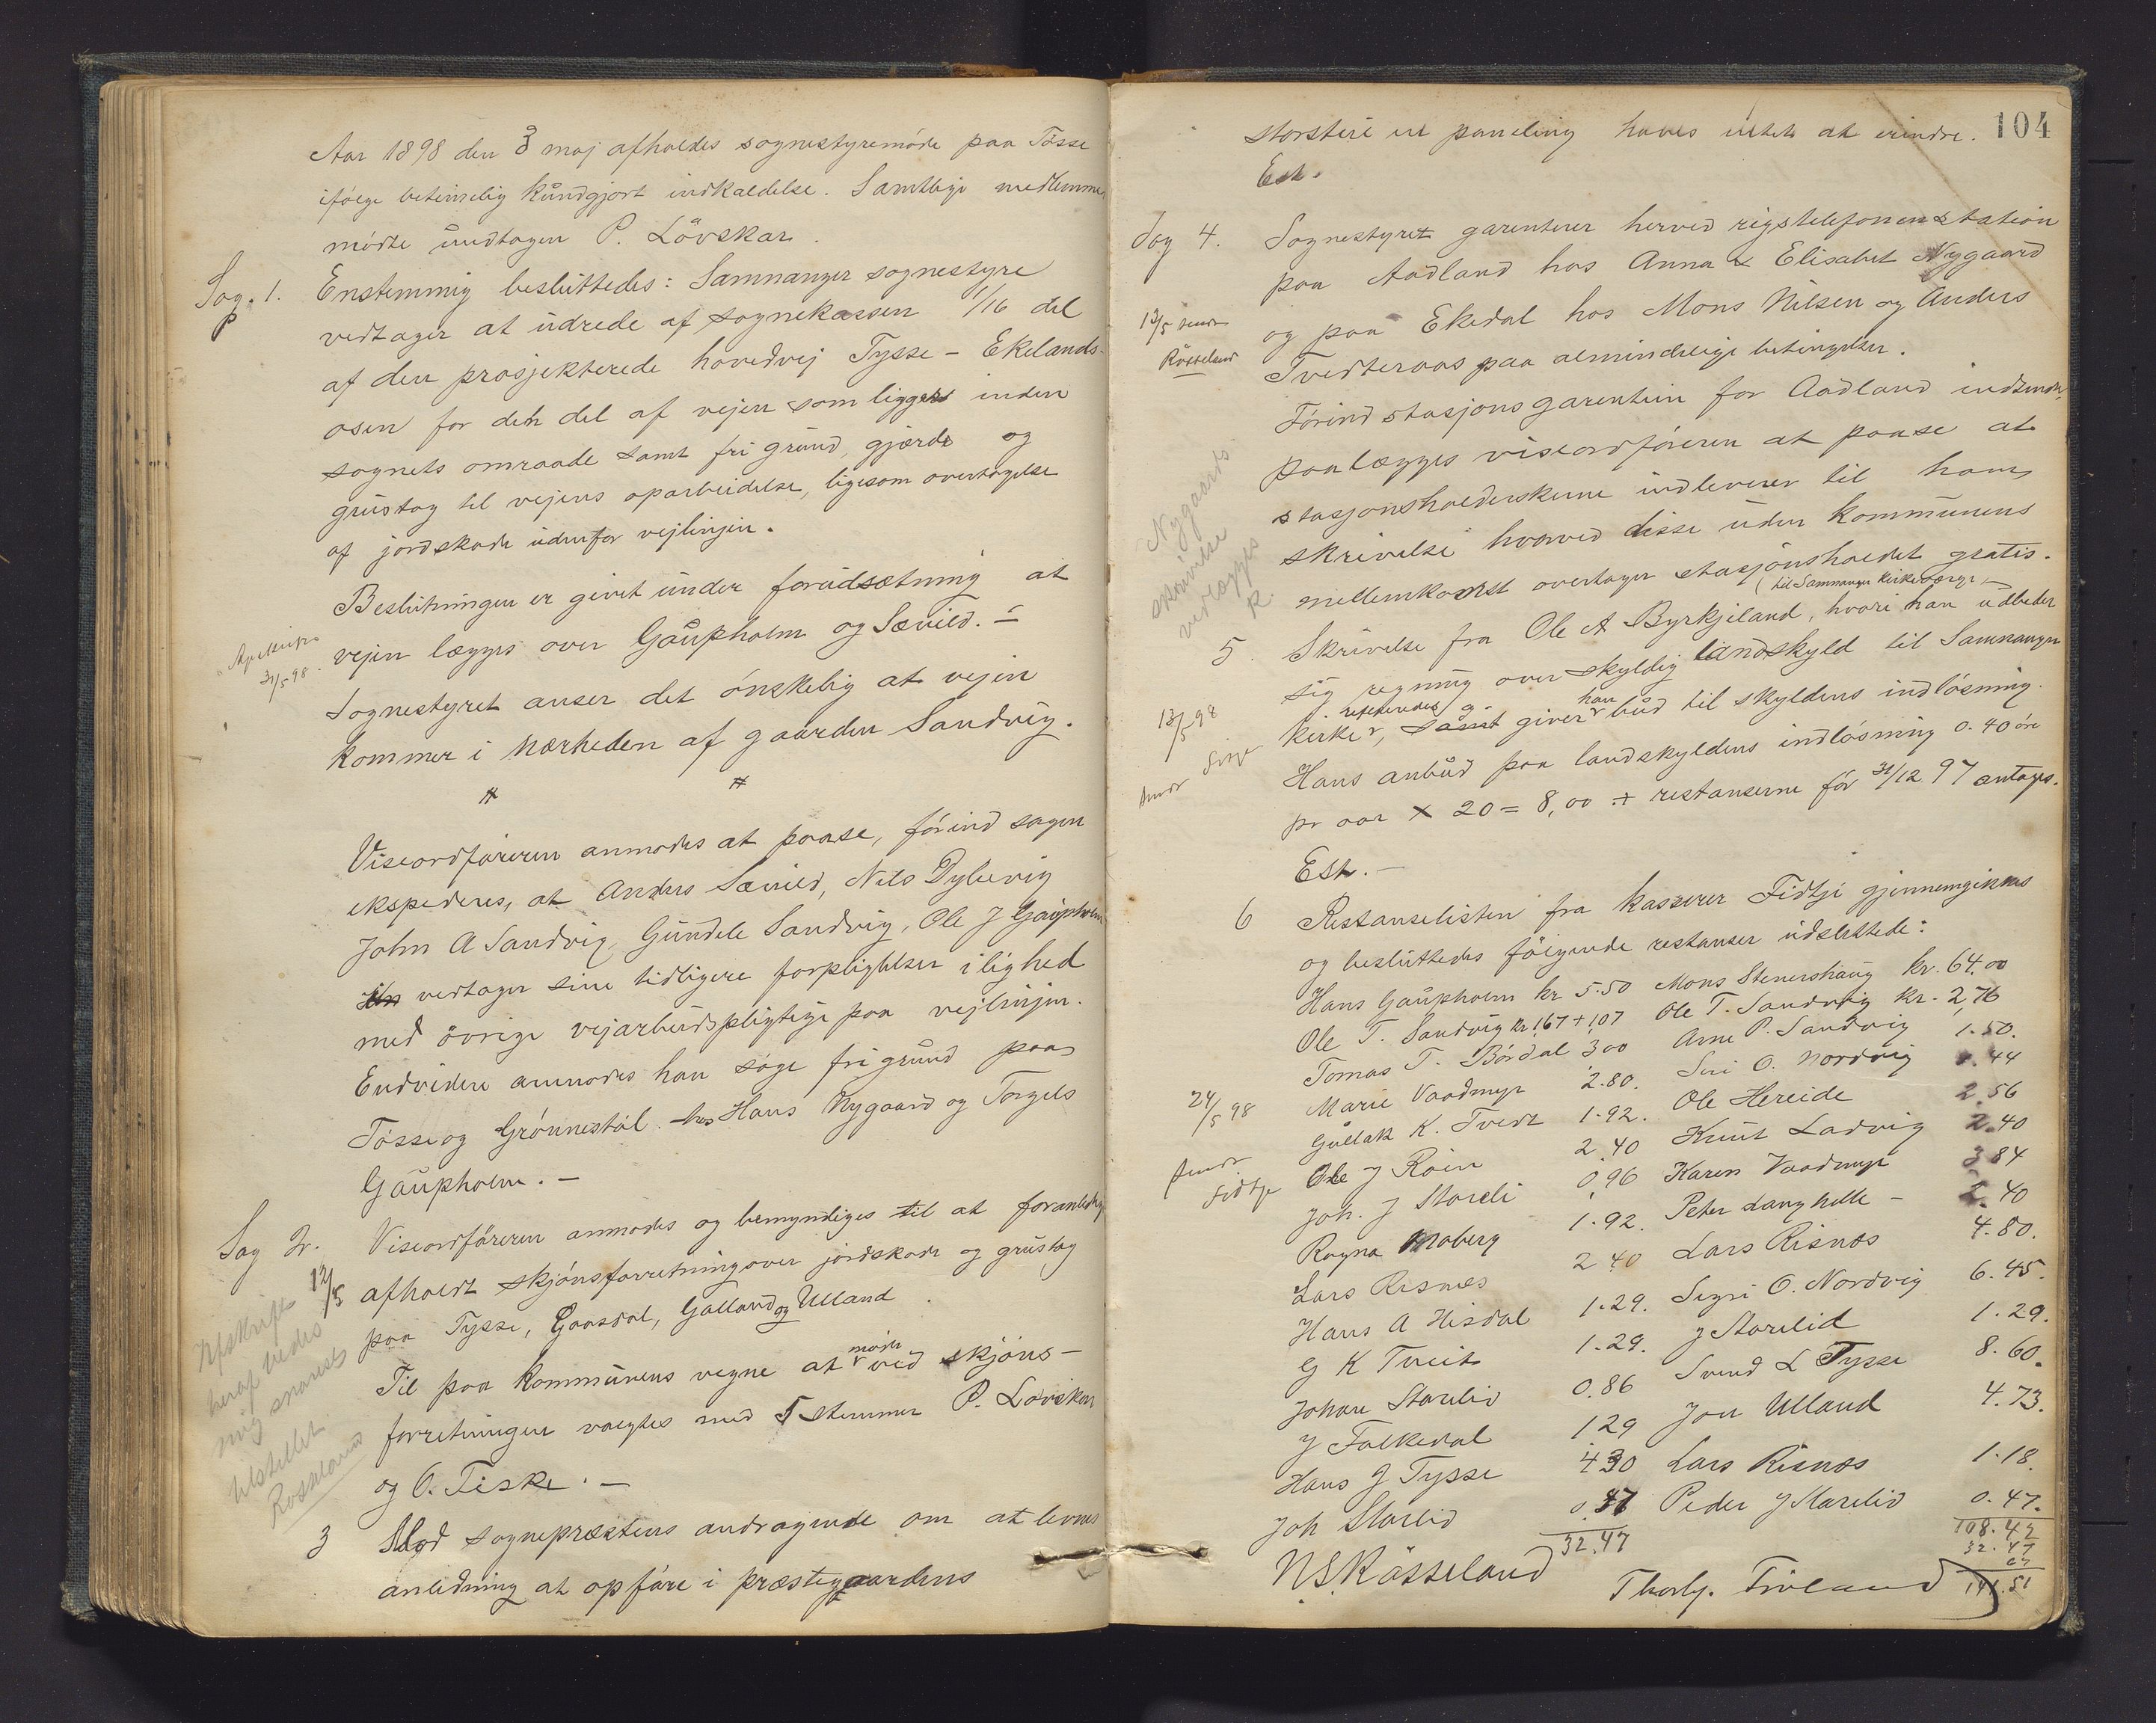 Aar 1898 den 3 maj afholdes sognestyremöde paa Tösse
ifölge betimelig kundgjort indkaldelse. Samtlige medlemmer
mödte undtagen P. Lövskar.
Sag. 1. Enstemmig besluttedes: Samnanger sognestyre
vedtager at udrede af sognekassen 1/16 del
af den prosjekterede hovedvej Tysse - Ekelands-
osen for den del af vejen som ligger inden
sognets omraade samt fri grund, gjærde og
grustag til vejens oparbeidelse, ligesom overtagelse
af jordskade udenfor vejlinjen.
Beslutningen er givet under forudsætning at
vejen lægges over Gaupholm og Sævild. -
31/5 98.
Sognestyret anser det önskelig at vejen
kommer i nærheden af gaarden Sandvig.
Viseordföreren anmodes at paase,förind sagen
ekspederes, at Anders Sævild, Nils Dyhevig
John A Sandvig, Gundele Sandvig, Ole J Gaupholm
vedtager sine tidligere forpligtelser i lighed
med övrige vejarbeidspligtige paa vejlinjen.
Endvidere anmodes han söge fri grund paa
Tösse og Grönnestöl hos Hans Nygaard og Torgels
Gaupholm. -
Sag 2. Viseordföreren anmodes og bemyndiges til at foranledig
12/5
afholdt skjönsforretning over jordskade og grustag
paa Tysse, Gaasdal, Galland og Ulland.
Til paa kommunens vegne at möde ved skjöns-
forretningen valgtes med 5 stemmer P. Lövskar
og O. Tiske. -
Afskrift
heraf bedes
mig snarest
tilstillet
Rosseland
3 Mod sognepræstens andragende om at levnes
anledning at opföre i præstegaardens
104
storstue ny paneling haves intet at erindre.
Est.
Sag 4. Sognestyret garenterer herved rigstelefonenstation
paa Aadland hos Anna & Elisabet Nygaard
og paa Ekedal hos Mons Nilsen og Anders
13/5 sendt
Rösseland
Tvedteraas paa almindelige betingelser.
Förind stasjonsgarentien for Aadland indsendes,
paalægges viseordföreren at paase at
stasjonsholderskerne indleverer til ham
skrivelse hvorved disse uden kommunens
mellemkomst overtager stasjonsholdet gratis.
Nygaards
skrivelse
vedlægges
R.
(til Samnanger kirkeværge
5. Skrivelse fra Ole A Byrkjeland, hvori han udbeder
sig regning over skyldig landskyld til Samnanger
kirke, refereredes og samt giver han bud til skyldens indlösning.
13/5 98
Sendt
Hans anbud paa landskyldens indlösning 0.40 öre
pr aar x 20 = 8,00 + restanserne för 31/12 97 antages.
Est. -
6 Restanselisten fra kasserer Fidtje gjennemgikkes
og besluttedes fölgende restanser udslettede:
Hans Gaupholm kr 5.50 Mons Stenershaug kr. 64,00
Ole T. Sandvig kr 1,67 + 1,07 Ole T. Sandvig kr. 2,76
Tomas T. Bördal 3 00 Arne P. Sandvig 1.50.
Marie Vaadmyr 2.80. Siri O. Nordvig 0.44
24/5 98
Gullak K. Tvedt 1.92. Ole Hereide 2.56
Ole J Röen 2.40 Knut Ladvig 2.40
sendt
Fidtje
Joh. J Storeli 0,96 Karen Vaadmyr 3 84
Ragna Moberg 1.92. Peter Langhelle - 2.40
Lars Risnes 2 40 Lars Risnæs 4.80.
Hans A Hisdal 1.29. Sigri O. Nordvig 6.45.
G K Tveit 1.29. J Storelid 1.29.
Johan Storelid 0.86 Svend L Tysse 8.60.
J Falkedal 1 29 Jon Ulland 4.73.
Hans J Tysse 4 30 Lars Risnæs 1.18.
Joh Storelid 0.47 Peder J Storelid 0.47.
32.47 108.42
32.47
141.51
N S. Rösseland Thorlg. Fröland